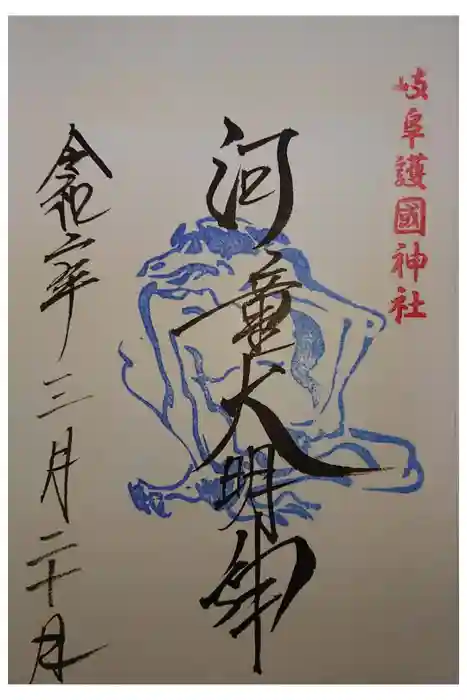 岐阜護國神社
河童大明神
令和六年三月二十日